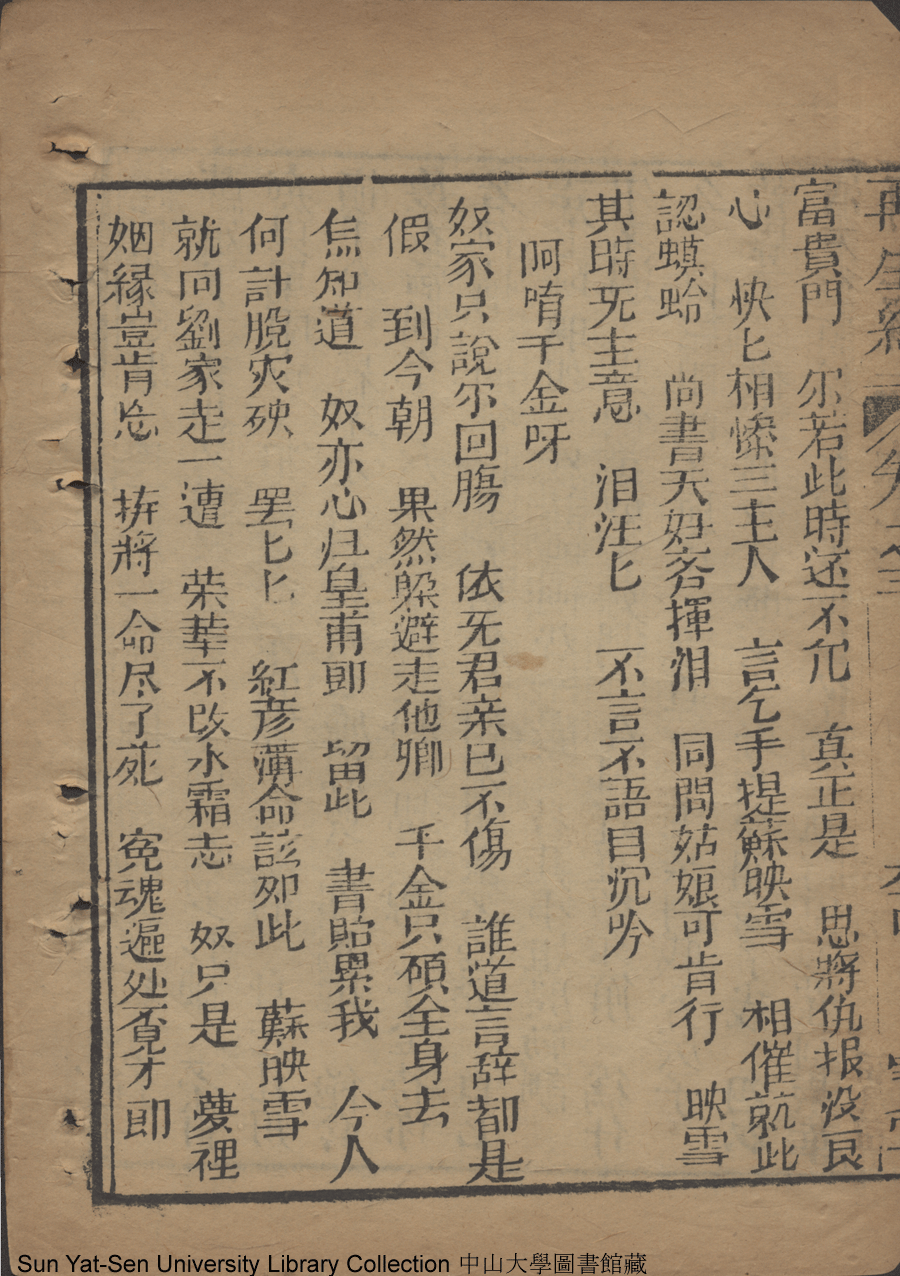 再生緣
富貴門　尔若此時还不允　真正是　思將仇报没良
心　怏匕相慘三主人　言乞手提蘇映雪　相催就此
認蟆蛤　尚書夫妇各揮泪　同問姑娘可肯行　映雪
其時死主意　泪汪匕　不言不語目沉吟
阿唷千金呀
奴家只說尔回腸　依死君亲已不傷　誰道言辞都是
假　到今朝　果然躱避走他鄉　千金只碩全身去
焦知道　奴亦心归皇甫郎　留此　書貽累我　今人
何計脫灾殃　罢匕匕　紅彦薄命該如此　蘇映雪
就同劉家走一遭　荣華不改氷霜志　奴只是　夢裡
姻緣豈肯忘　拚將一命尽了死　寃魂遍处覓才郎
Sun Yat-Sen University Library Collection 中山大學圖書館藏